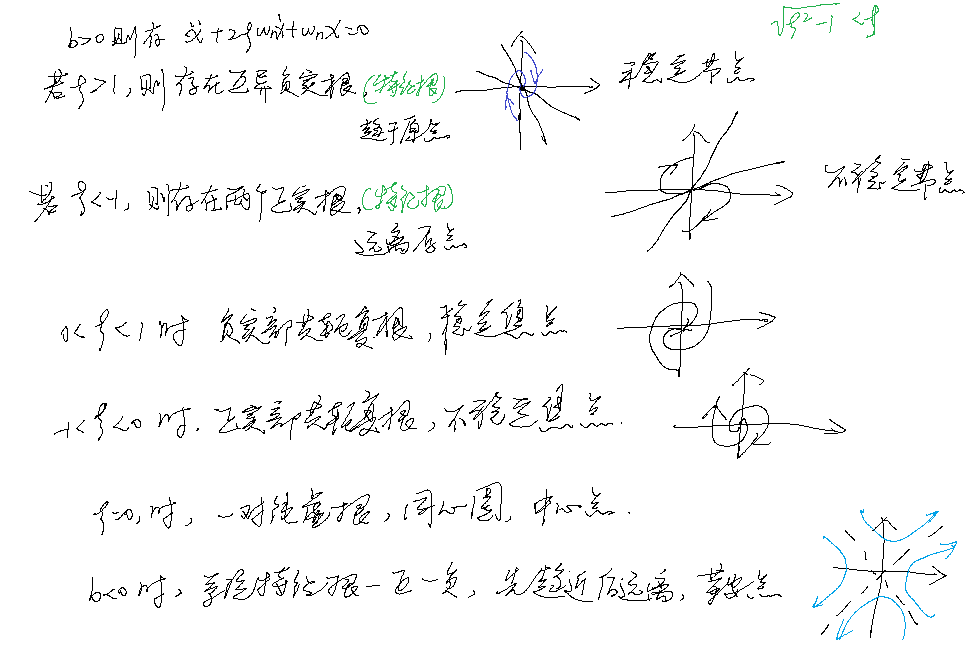 b>0则有 ẍ+2ξωnẋ+ωnx=0
√ξ²-1 <ξ
若ξ>1,则存在互异负实根,(特征根)
趋于原点
稳定节点
若ξ<-1,则存在两个正实根,(特征根)
远离原点
不稳定节点
0<ξ<1时 负实部共轭复根,稳定焦点
-1<ξ<0时.正实部共轭复根,不稳定焦点.
ξ=0,时,一对纯虚根,同心圆,中心点.
b<0时,系统特征根一正一负,先趋近后远离,鞍点